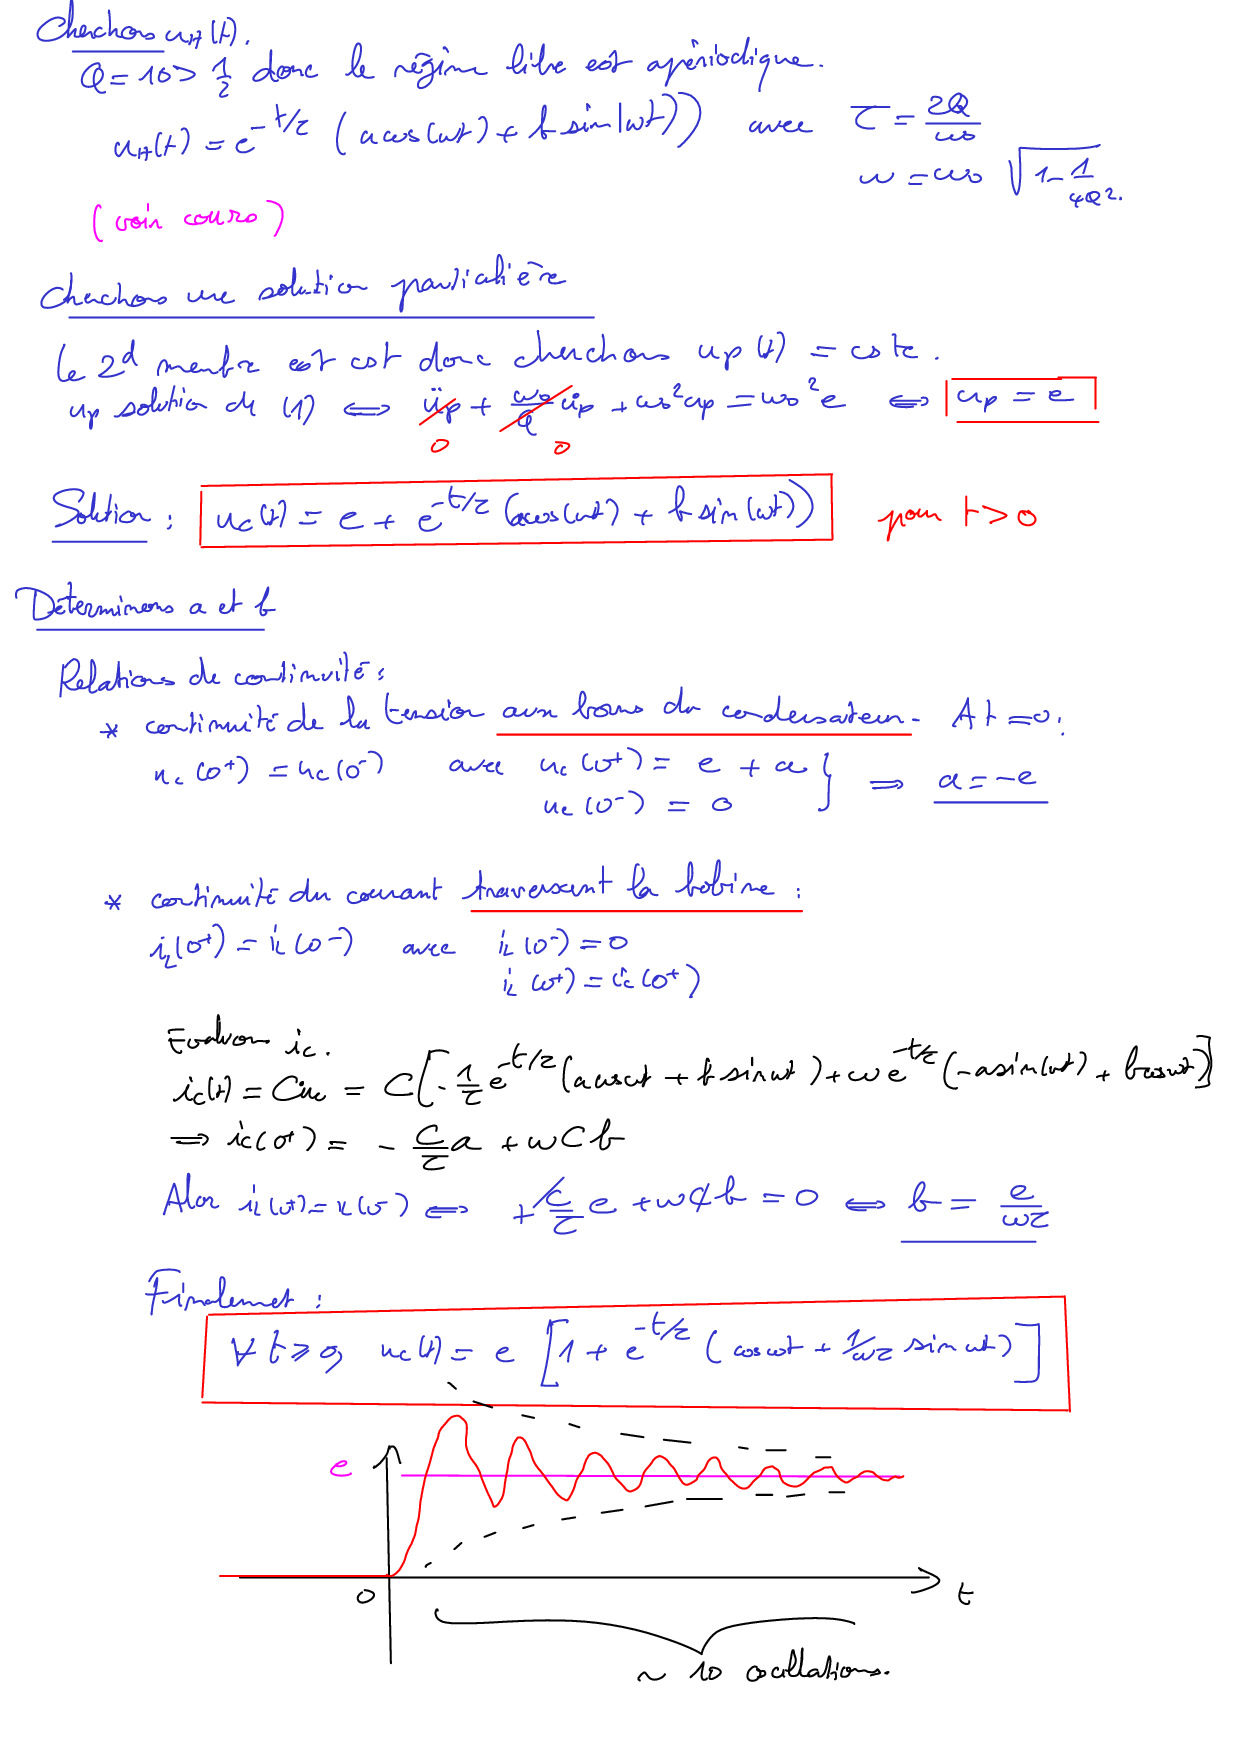 Cherchons u_H(t).
Q = 10 > 1/2 donc le régime libre est apériodique.
u_H(t) = e^{-t/τ} (a cos(ωt) + b sin(ωt)) avec τ = 2Q/ω₀
ω = ω₀ √(1 - 1/4Q²).
(voir cours)
Cherchons une solution particulière
Le 2^d membre est cst donc cherchons up(t) = cste.
up solution de (1) ⟺ üp + ω₀/Q u̇p + ω₀² up = ω₀² e ⟺ up = e
0 0
Solution : u_c(t) = e + e^{-t/τ} (a cos(ωt) + b sin(ωt)) pour t > 0
Déterminons a et b
Relations de continuité :
* continuité de la tension aux bornes du condensateur. A t = 0.
u_c(0⁺) = u_c(0⁻) avec u_c(0⁺) = e + a } ⟹ a = -e
u_c(0⁻) = 0
* continuité du courant traversant la bobine :
i_L(0⁺) = i_L(0⁻) avec i_L(0⁻) = 0
i_L(0⁺) = i_c(0⁺)
Evaluons i_c.
i_c(t) = C u̇_c = C [ - 1/τ e^{-t/τ} (a cos ωt + b sin ωt) + ω e^{-t/τ} (-a sin(ωt) + b cos ωt) ]
⟹ i_c(0⁺) = - C/τ a + ω C b
Alor i_L(0⁺) = i_L(0⁻) ⟺ + C/τ e + ω C b = 0 ⟺ b = e/ωτ
Finalemet :
∀ t ≥ 0, u_c(t) = e [ 1 + e^{-t/τ} ( cos ωt + 1/ωτ sin ωt ) ]
e
0
t
~ 10 oscillations.